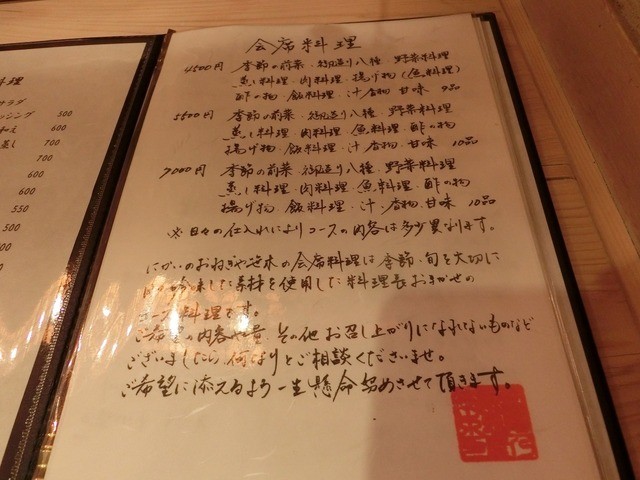 理
サラダ
ッシング 500
和え 600
蒸し 700
700
600
600
550
500
00
会席料理
4500円 季節の前菜・御造り八種・野菜料理
蒸し料理・肉料理・揚げ物(魚料理)
酢の物・飯料理・汁・香物・甘味 9品
5500円 季節の前菜・御造り八種・野菜料理
蒸し料理・肉料理・魚料理・酢の物
揚げ物・飯料理・汁・香物・甘味 10品
7000円 季節の前菜・御造り八種・野菜料理
蒸し料理・肉料理・魚料理・酢の物
揚げ物・飯料理・汁・香物・甘味 10品
※日々の仕入れによりコースの内容は多少異なります。
にかいのおねぎや笹木の会席料理は季節・旬を大切に
吟味した素材を使用した料理長おまかせの
コース料理です。
ご希望の内容や量、その他お召し上がりになれないものなど
ございましたら何なりとご相談くださいませ。
ご希望に添えるよう一生懸命努めさせて頂きます。